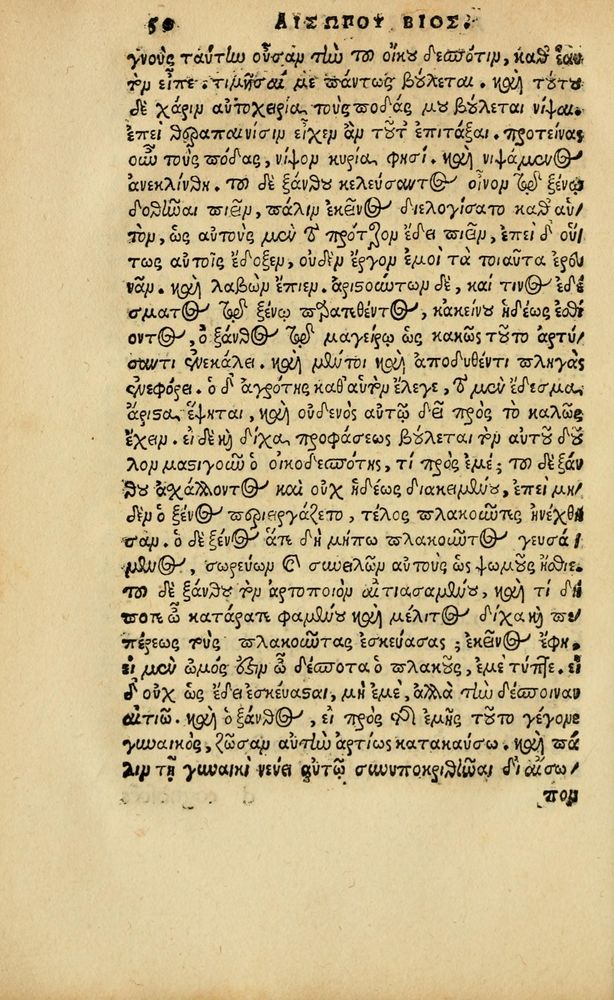 50 ΑΙΣΩΠΟΥ ΒΙΟΣ.
γνοὺς ταύτην οὖσαν τὴν τοῦ οἴκου δεσπότιν, καθ' ἑαυ
τὸν εἶπε. τιμῆσαί με πάντως βούλεται. καὶ τούτου
δὲ χάριν αὐτοχειρία τοὺς πόδας μου βούλεται νίψαι.
ἐπεὶ θεραπαινίσιν εἶχεν ἂν τοῦτ' ἐπιτάξαι. προτείνας
οὖν τοὺς πόδας, νίψον κυρία φησί. καὶ νιψάμενος
ἀνεκλίνθη. τοῦ δὲ ξάνθου κελεύσαντος οἶνον τῷ ξένῳ
δοθῆναι πιεῖν, πάλιν ἐκεῖνος διελογίσατο καθ' αὑ
τὸν, ὡς αὐτοὺς μὲν πρότερον ἔδει πιεῖν, ἐπεὶ δ' οὕ
τως αὐτοῖς ἔδοξεν, οὐδὲν ἔργον ἐμοὶ τὰ τοιαῦτα ἐρευ
νᾶν. καὶ λαβὼν ἔπιεν. ἀριστώντων δὲ, καί τινος ἐδέ
σματος τῷ ξένῳ παρατεθέντος, κἀκείνου ἡδέως ἐσθί
οντος, ὁ ξάνθος τῷ μαγείρῳ ὡς κακῶς τοῦτο ἀρτύ
σαντι ἐνεκάλει. καὶ μέντοι καὶ ἀποδυθέντι πληγὰς
ἐνεφόρει. ὁ δ' ἀγρότης καθ' αὑτὸν ἔλεγε, τὸ μὲν ἔδεσμα
ἄριστα ἕψηται, καὶ οὐδενὸς αὐτῷ δεῖ πρὸς τὸ καλῶς
ἔχειν. εἰ δὲ καὶ δίχα προφάσεως βούλεται τὸν αὐτοῦ δοῦ
λον μαστιγοῦν ὁ οἰκοδεσπότης, τί πρὸς ἐμέ; τοῦ δὲ ξάν
θου ἀχάλλοντος καὶ οὐχ ἡδέως διακειμένου, ἐπεὶ μη
δὲν ὁ ξένος περιεργάζετο, τέλος πλακοῦντες ἠνέχθη
σαν. ὁ δὲ ξένος ἅτε δὴ μήπω πλακοῦντος γευσά
μενος, σωρεύων καὶ συνειλῶν αὐτοὺς ὡς ψωμοὺς ἤσθιε.
τοῦ δὲ ξάνθου τὸν ἀρτοποιὸν αἰτιασαμένου, καὶ τί δή
ποτε ὦ κατάρατε φαμένου καὶ μέλιτος δίχα καὶ πε
πέρεως τοὺς πλακοῦντας ἐσκεύασας; ἐκεῖνος ἔφη,
εἰ μὲν ὠμός ἐστιν ὦ δέσποτα ὁ πλακοῦς, ἐμὲ τύπτε. εἰ
δ' οὐχ ὡς ἔδει ἐσκεύασται, μὴ ἐμὲ, ἀλλὰ τὴν δέσποιναν
αἰτιῶ. καὶ ὁ ξάνθος, εἰ πρὸς τῆς ἐμῆς τοῦτο γέγονε
γυναικὸς, ζῶσαν αὐτὴν ἀρτίως κατακαύσω. καὶ πά
λιν τῇ γυναικὶ νεύει αὐτῷ συνυποκριθῆναι δι' αἴσω
πον